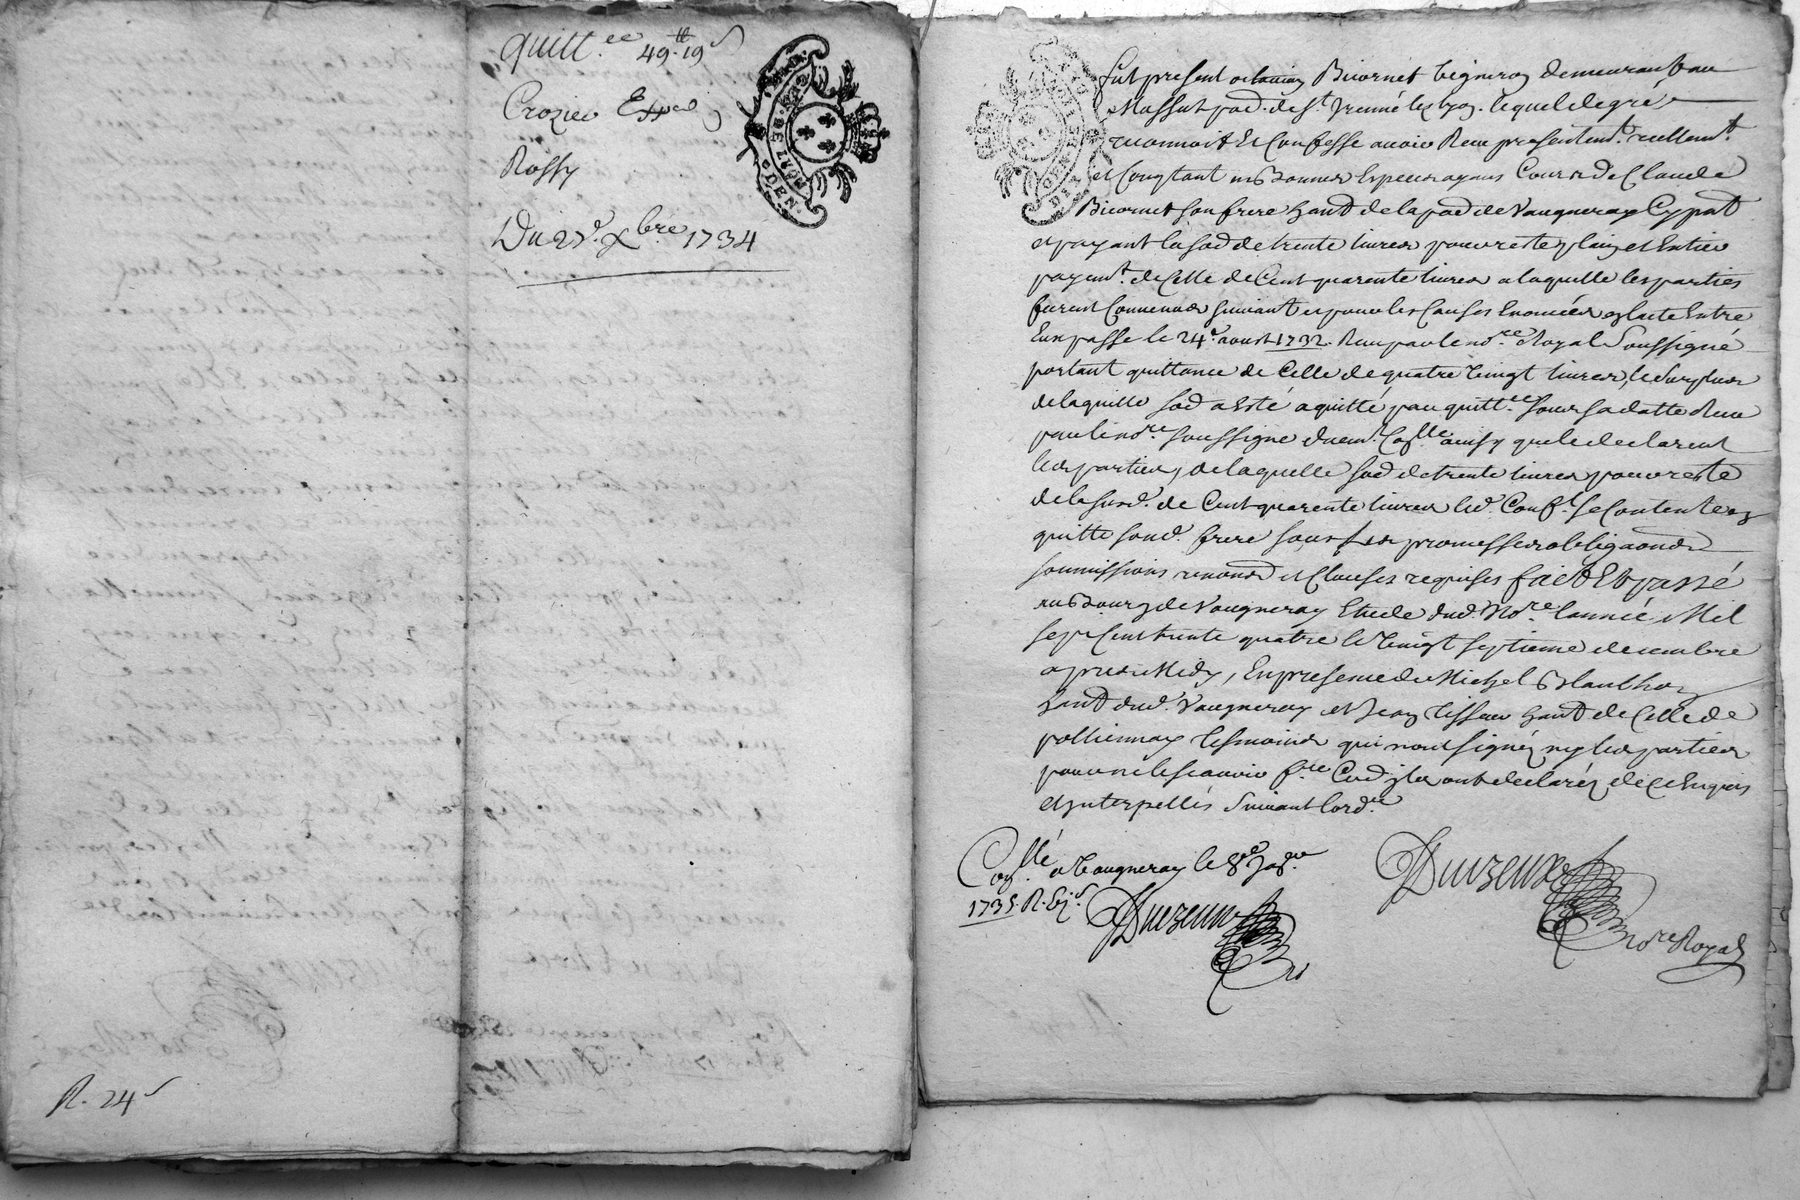 quitt.ce 49tt 19s
Crozier
Rossy
Du 27e Xbre 1734
R. 24s
GENERALITE DE LYON
DEN.
fut present Bicornet vigneron demeurant au
Massut parr. de St Irenné les Lyon. lequel de gré
reconnoit Et Confesse avoir Receu presentemt. reellemt.
et Comptant en bonnes Especes ayans Cours de Claude
Bicornet son frere hant de la parr de Vaugneray Cy pnt
et payant la so de trente livres pour reste plain et Entier
payemt. de Celle de Cent quarente livres a laquelle les parties
furent Convenues suivant et pour les Causes Enoncées Entre
Eux passé le 24e aoust 1732. Receu par le nore Royal Soussigné
portant quittance de Celle de quatre vingt livres, le surplus
de laquelle so a Esté aquitté par quittce sous sa datte Receu
par le nore soussigné ainsy que le declarent
les parties, de laquelle so de trente livres pour reste
de la susd. de Cent quarente livres led. Conft. se Contente
quitte sond. frere sous les promesses obligaons
soumissions renons et Clauses requises fait Et passé
au Bourg de Vaugneray Etude dud. Nore L'année Mil
sept Cent trente quatre le vingt septieme decembre
apres Midy, En presence de Michel Blanchon
hant dud. Vaugneray et Jean Tisseur hant de Celle de
polliennay tesmoins qui n'ont signéz ny les parties
pour ne le scavoir fre Comme ils ont declaréz de ce Enquis
et Interpellés Suivant l'ordce
Collé a Vaugneray le 8e Janr
1735. R.